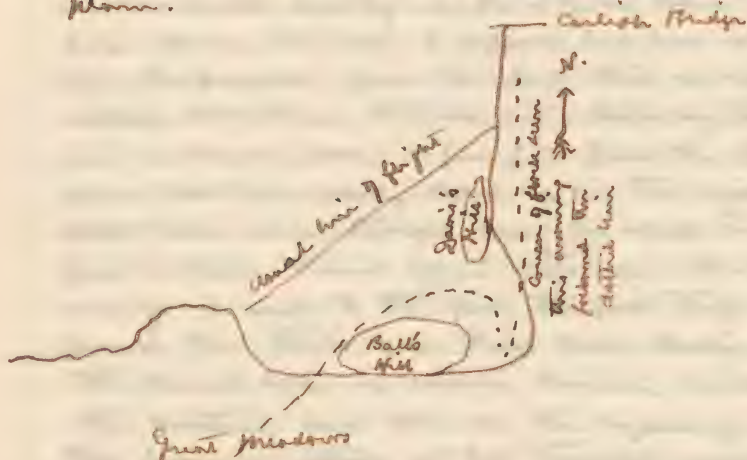 plain.
Carlisle Bridge
N.
usual line of flight
Davis's
Hill
Course of flock seen
this evening
followed the
dotted line
Ball's
Hill
Great Meadows